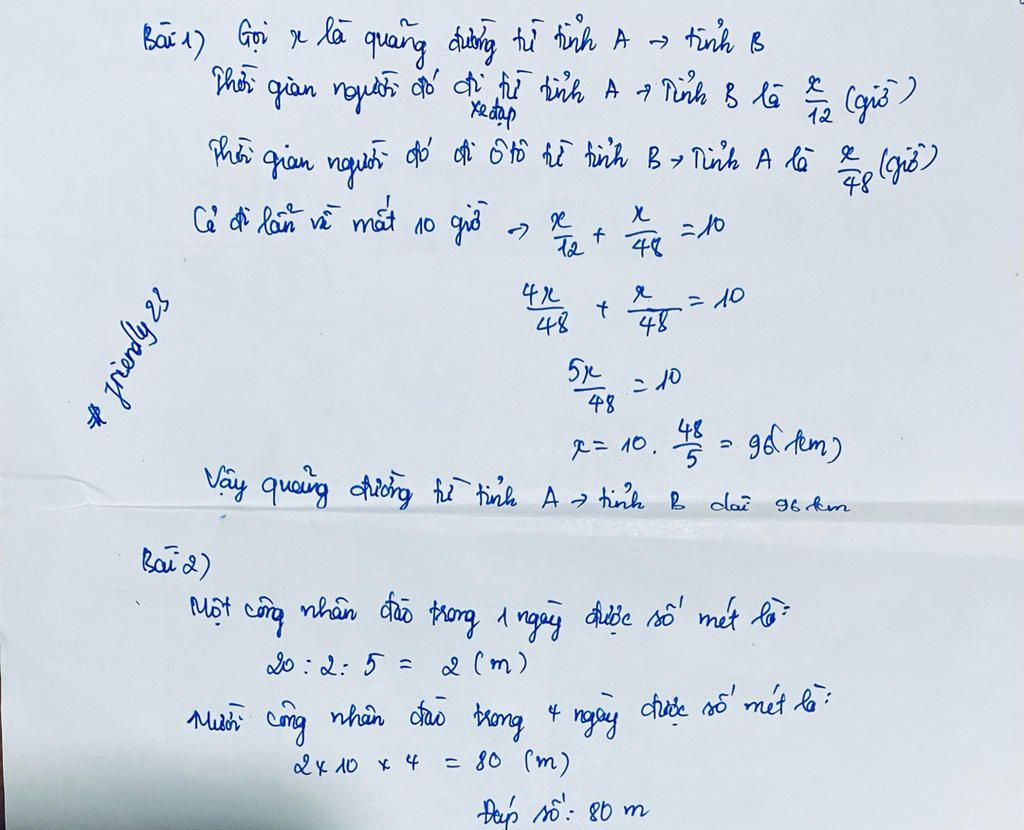 Bài 1) Gọi x là quãng đường từ tỉnh A → tỉnh B
Thời gian người đó đi xe đạp từ tỉnh A → Tỉnh B là x/12 (giờ)
Thời gian người đó đi ô tô từ tỉnh B → Tỉnh A là x/48 (giờ)
Cả đi lẫn về mất 10 giờ → x/12 + x/48 = 10
4x/48 + x/48 = 10
5x/48 = 10
x = 10 . 48/5 = 96 (km)
* friendly 23
Vậy quãng đường từ tỉnh A → tỉnh B dài 96 km
Bài 2)
Một công nhân đào trong 1 ngày được số mét là:
20 : 2 : 5 = 2 (m)
Mười công nhân đào trong 4 ngày được số mét là:
2 x 10 x 4 = 80 (m)
Đáp số: 80 m